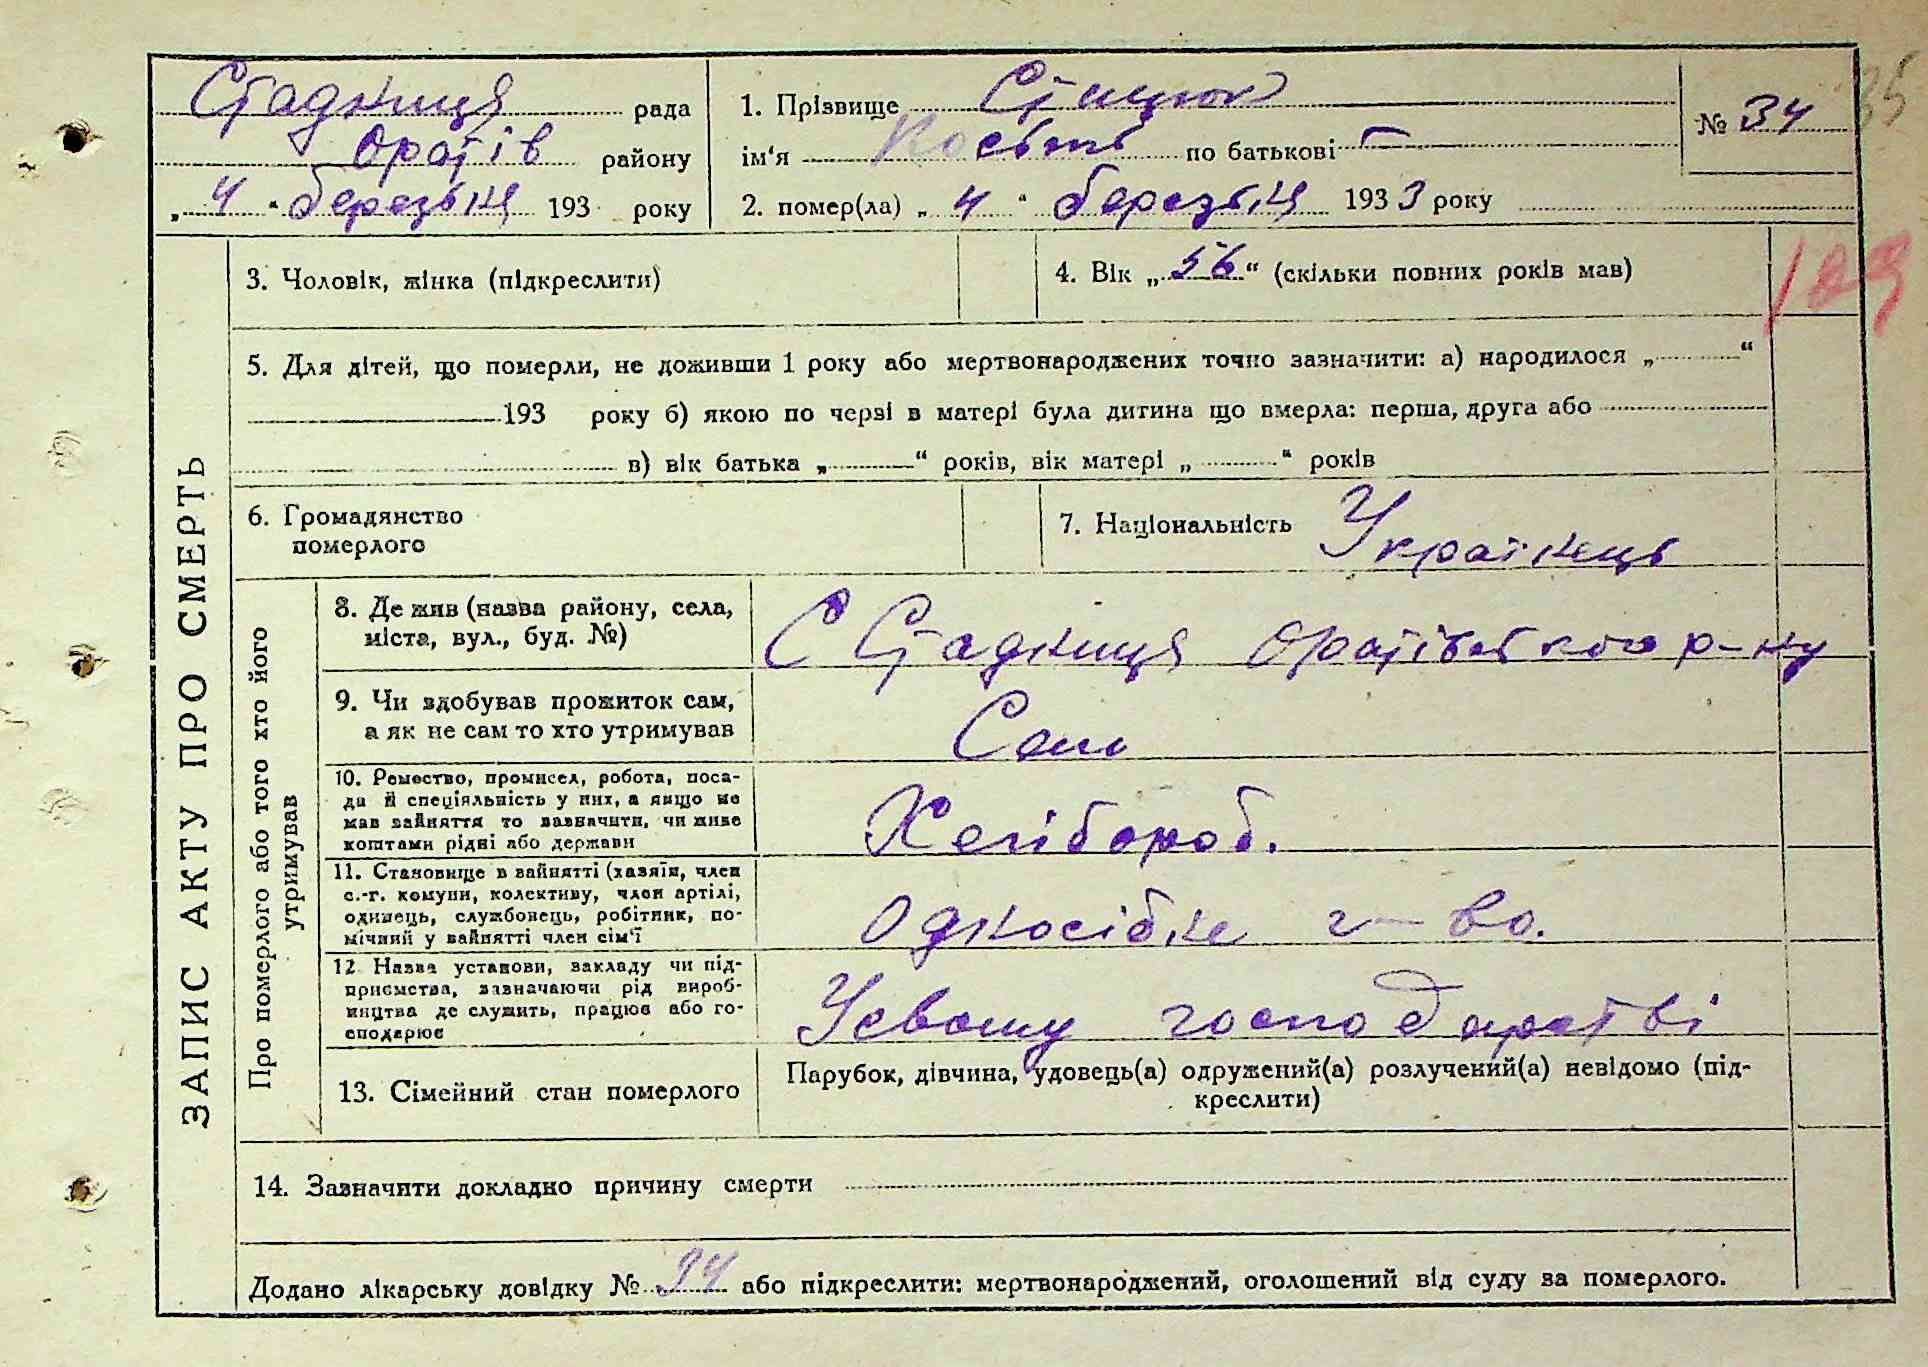 Стадниця рада
Оратів району
„ 4 " березня 193 року
1. Прізвище Стацюк
ім'я Кость по батькові —
2. помер(ла) „ 4 " березня 1933 року
№ 34
35
3. Чоловік, жінка (підкреслити)
4. Вік „ 56 " (скільки повних років мав)
129
5. Для дітей, що померли, не доживши 1 року або мертвонароджених точно зазначити: а) народилося „ "
193 року б) якою по черзі в матері була дитина що вмерла: перша, друга або
в) вік батька „ " років, вік матері „ " років
6. Громадянство
померлого
7. Національність Українець
ЗАПИС АКТУ ПРО СМЕРТЬ
Про померлого або того хто його
утримував
8. Де жив (назва району, села,
міста, вул., буд. №)
С Стадниця Оратівського р-ну
9. Чи здобував прожиток сам,
а як не сам то хто утримував
Сам
10. Ремество, промисел, робота, поса-
ди й спеціяльність у них, а якщо не
мав зайняття то зазначити, чи живе
коштами рідні або держави
Хлібороб.
11. Становище в зайнятті (хазяїн, член
с.-г. комуни, колективу, член артілі,
одинець, службовець, робітник, по-
мічний у зайнятті член сім'ї
Односібне г-во.
12 Назва установи, закладу чи під-
приємства, зазначаючи рід вироб-
ництва де служить, працює або го-
сподарює
Усвому господарстві
13. Сімейний стан померлого
Парубок, дівчина, удовець(а) одружений(а) розлучений(а) невідомо (під-
креслити)
14. Зазначити докладно причину смерти
Додано лікарську довідку № 34 або підкреслити: мертвонароджений, оголошений від суду за померлого.